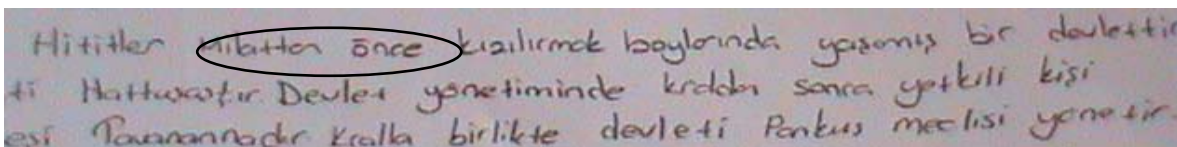 Hititler Milattan önce kızılırmak boylarında yaşamış bir devlettir
ti Hattuşaştır. Devlet yönetiminde kraldan sonra yetkili kişi
esi Tavanannadır Kralla birlikte devleti Pankuş meclisi yönetir.